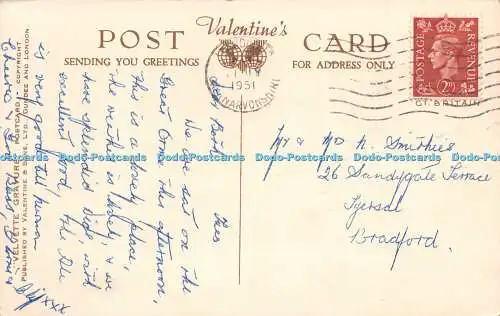 Valentine's
POST CARD
SENDING YOU GREETINGS
FOR ADDRESS ONLY
1951
CAERNARVONSHIRE
POSTAGE REVENUE
2D
GT. BRITAIN
"VELVETTE GRAVURE" POSTCARD COPYRIGHT
PUBLISHED BY VALENTINE & SONS, LTD., DUNDEE AND LONDON
Tues
We are sat on the
Great Orme this afternoon,
this is a lovely place,
the weather is lovely, & we
have splendid digs, with
excellent food, the
is very good tall
Cheerio &
xxx
Mr & Mrs A. Smithies
26 Sandygate Terrace
Tyersal
Bradford.
Dodo-Postcards Dodo-Postcards Dodo-Postcards Dodo-Postcards Dodo-Postcards